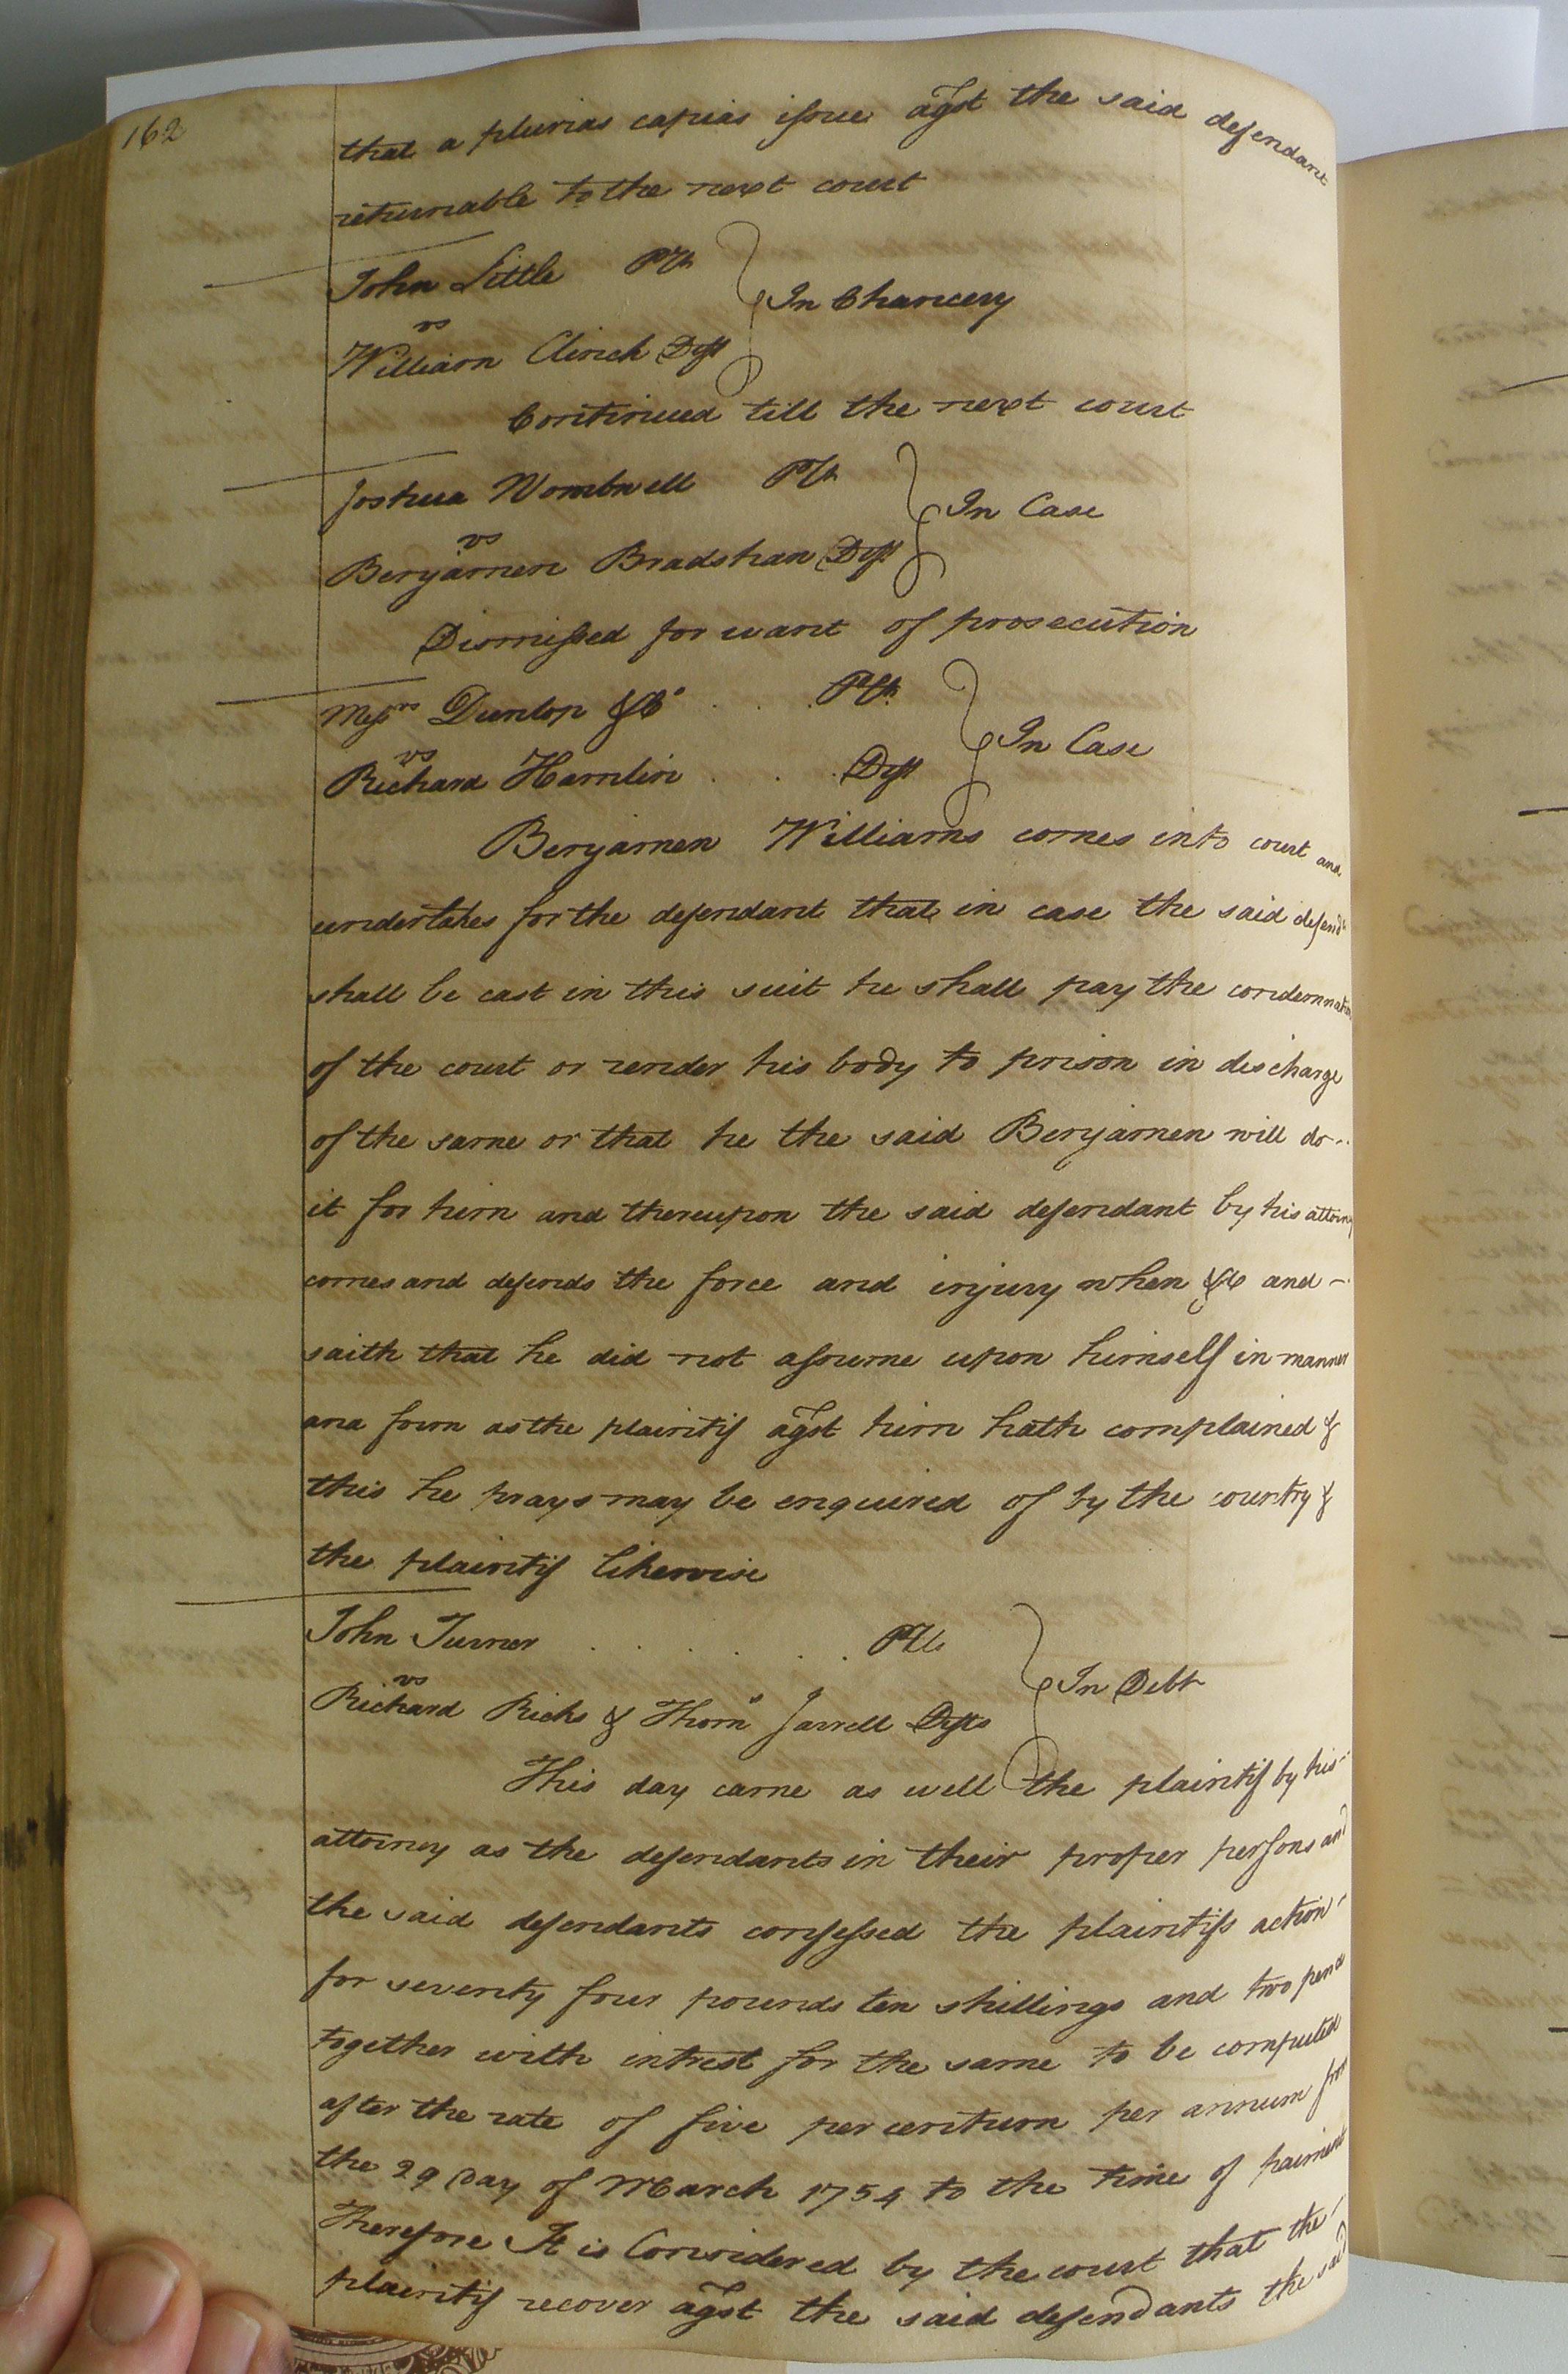 162
that a plurias capias issue agst the said defendant
returnable to the next court
John Little Plt
vs
In Chancery
William Clinch Deft
Continued till the next court
Joshua Wombwell Plt
vs
In Case
Benjamen Bradshaw Deft
Dismissed for want of prosecution
Messrs Dunlop &Co . . . Plt
vs
In Case
Richard Hamlin . . . Deft
Benjamen Williams comes into court and
undertakes for the defendant that in case the said defendt
shall be cast in this suit he shall pay the condemnation
of the court or render his body to prison in discharge
of the same or that he the said Benjamen will do
it for him and thereupon the said defendant by his attorny
comes and defends the force and injury when &c and
saith that he did not assume upon himself in manner
and form as the plaintif agst him hath complained &
this he prays may be enquired of by the country &
the plaintif likewise
John Turner . . . . Plt
vs
In Debt
Richard Ricks & Thomo Jarrell Defts
This day came as well the plaintif by his
attorney as the defendants in their proper persons and
the said defendants confessed the plaintifs action
for seventy four pounds ten shillings and two pence
together with intrest for the same to be computed
after the rate of five per centum per annum from
the 29 Day of March 1754 to the time of paiment
Therefore It is Considered by the court that the
plaintif recover agst the said defendants the said